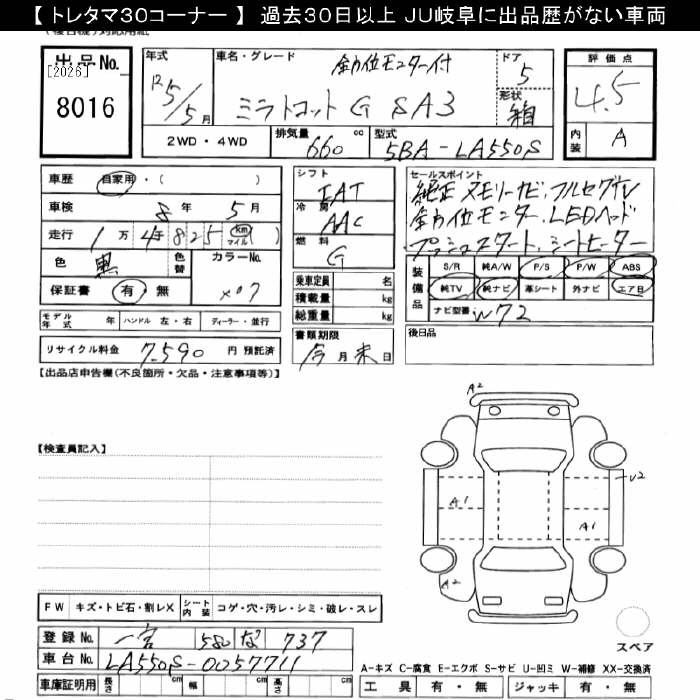 【 トレタマ30コーナー 】 過去30日以上 JU岐阜に出品歴がない車両
出品No.
[2026]
8016
年式
R5/5月
車名・グレード
全方位モニター付
ミラトコット G SA3
ドア
5
形状
箱
評価点
4.5
内装
A
2WD・4WD
排気量
660 cc
型式
5BA-LA550S
車歴
自家用・( )
車検
8年 5月
走行
1万4千825 km マイル ( )
色
黒
色替
カラーNo.
X07
保証書
有・無
モデル年式 年
ハンドル 左・右
ディーラー・並行
リサイクル料金
7,590 円 預託済
シフト
IAT
冷房
AAC
燃料
G
乗車定員 名
積載量 kg
総重量 kg
書類期限
今月末日
セールスポイント
純正メモリーナビ、フルセグTV
全方位モニター、LEDヘッド
プッシュスタート、シートヒーター
装備品
S/R 純A/W P/S P/W ABS
純TV 純ナビ 革シート 外ナビ エア日
ナビ型番
W72
後日品
【出品店申告欄(不良個所・欠品・注意事項等)】
【検査員記入】
A2
A1
A1
U2
A2
FW キズ・トビ石・割レX
シート内装 コゲ・穴・汚レ・シミ・破レ・スレ
登録No.
一宮 580 な 737
車台No.
LA550S-0057711
車庫証明用 長さ cm 幅 cm 高さ cm
スペア
A-キズ C-腐食 E-エクボ S-サビ U-凹ミ W-補修 XX-交換済
工具 有・無 ジャッキ 有・無